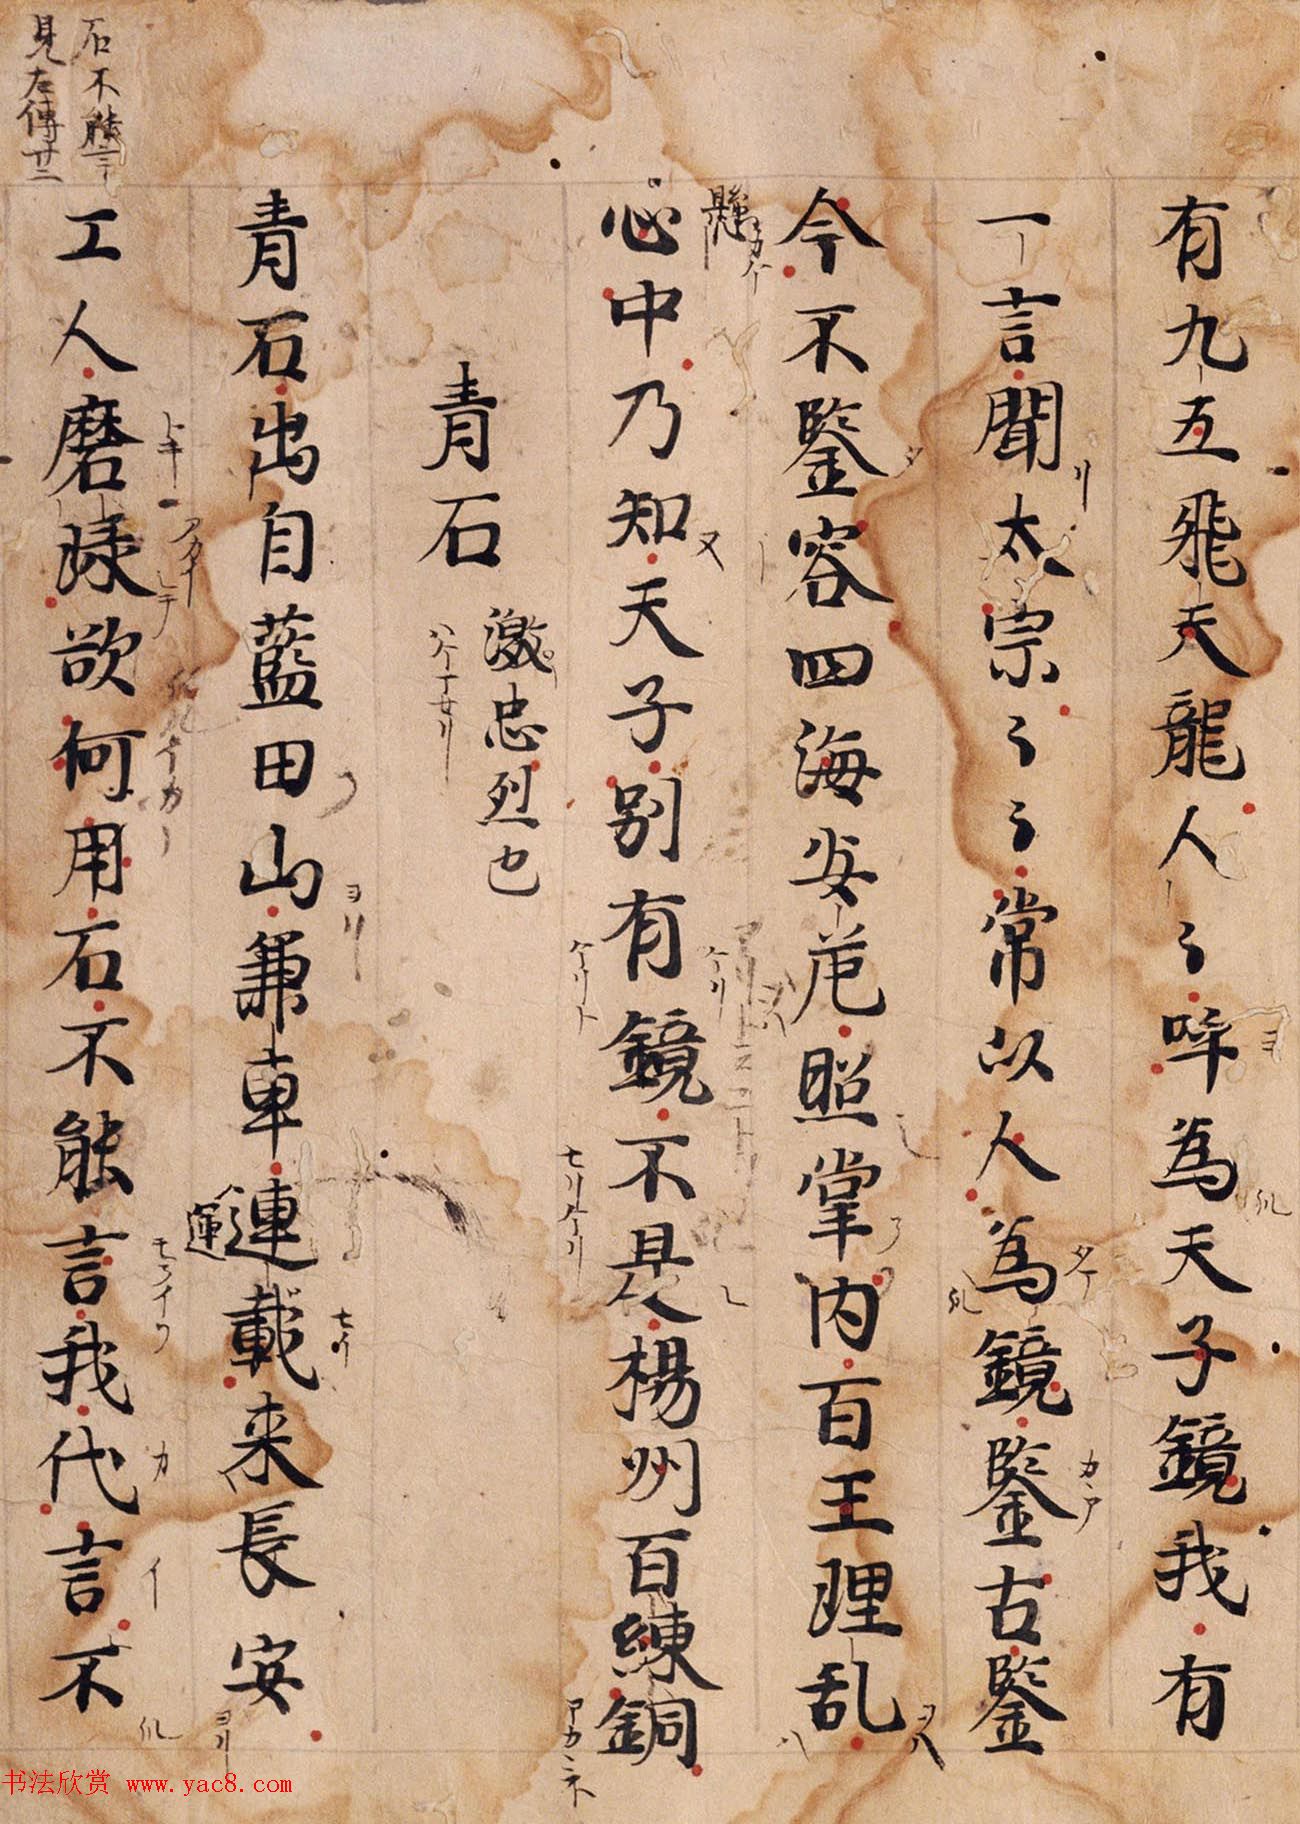 有九五飛天龍人〻呼為天子鏡我有
一言聞太宗〻〻常以人為鏡鑒古鑒
今不鑒容四海安危照掌内百王理乱
懸
心中乃知天子別有鏡不是楊州百練銅
青石 激忠烈也
青石出自藍田山兼車連載来長安
運
工人磨琢欲何用石不能言我代言不
石不能言
見左傳廿二
书法欣赏 www.yac8.com